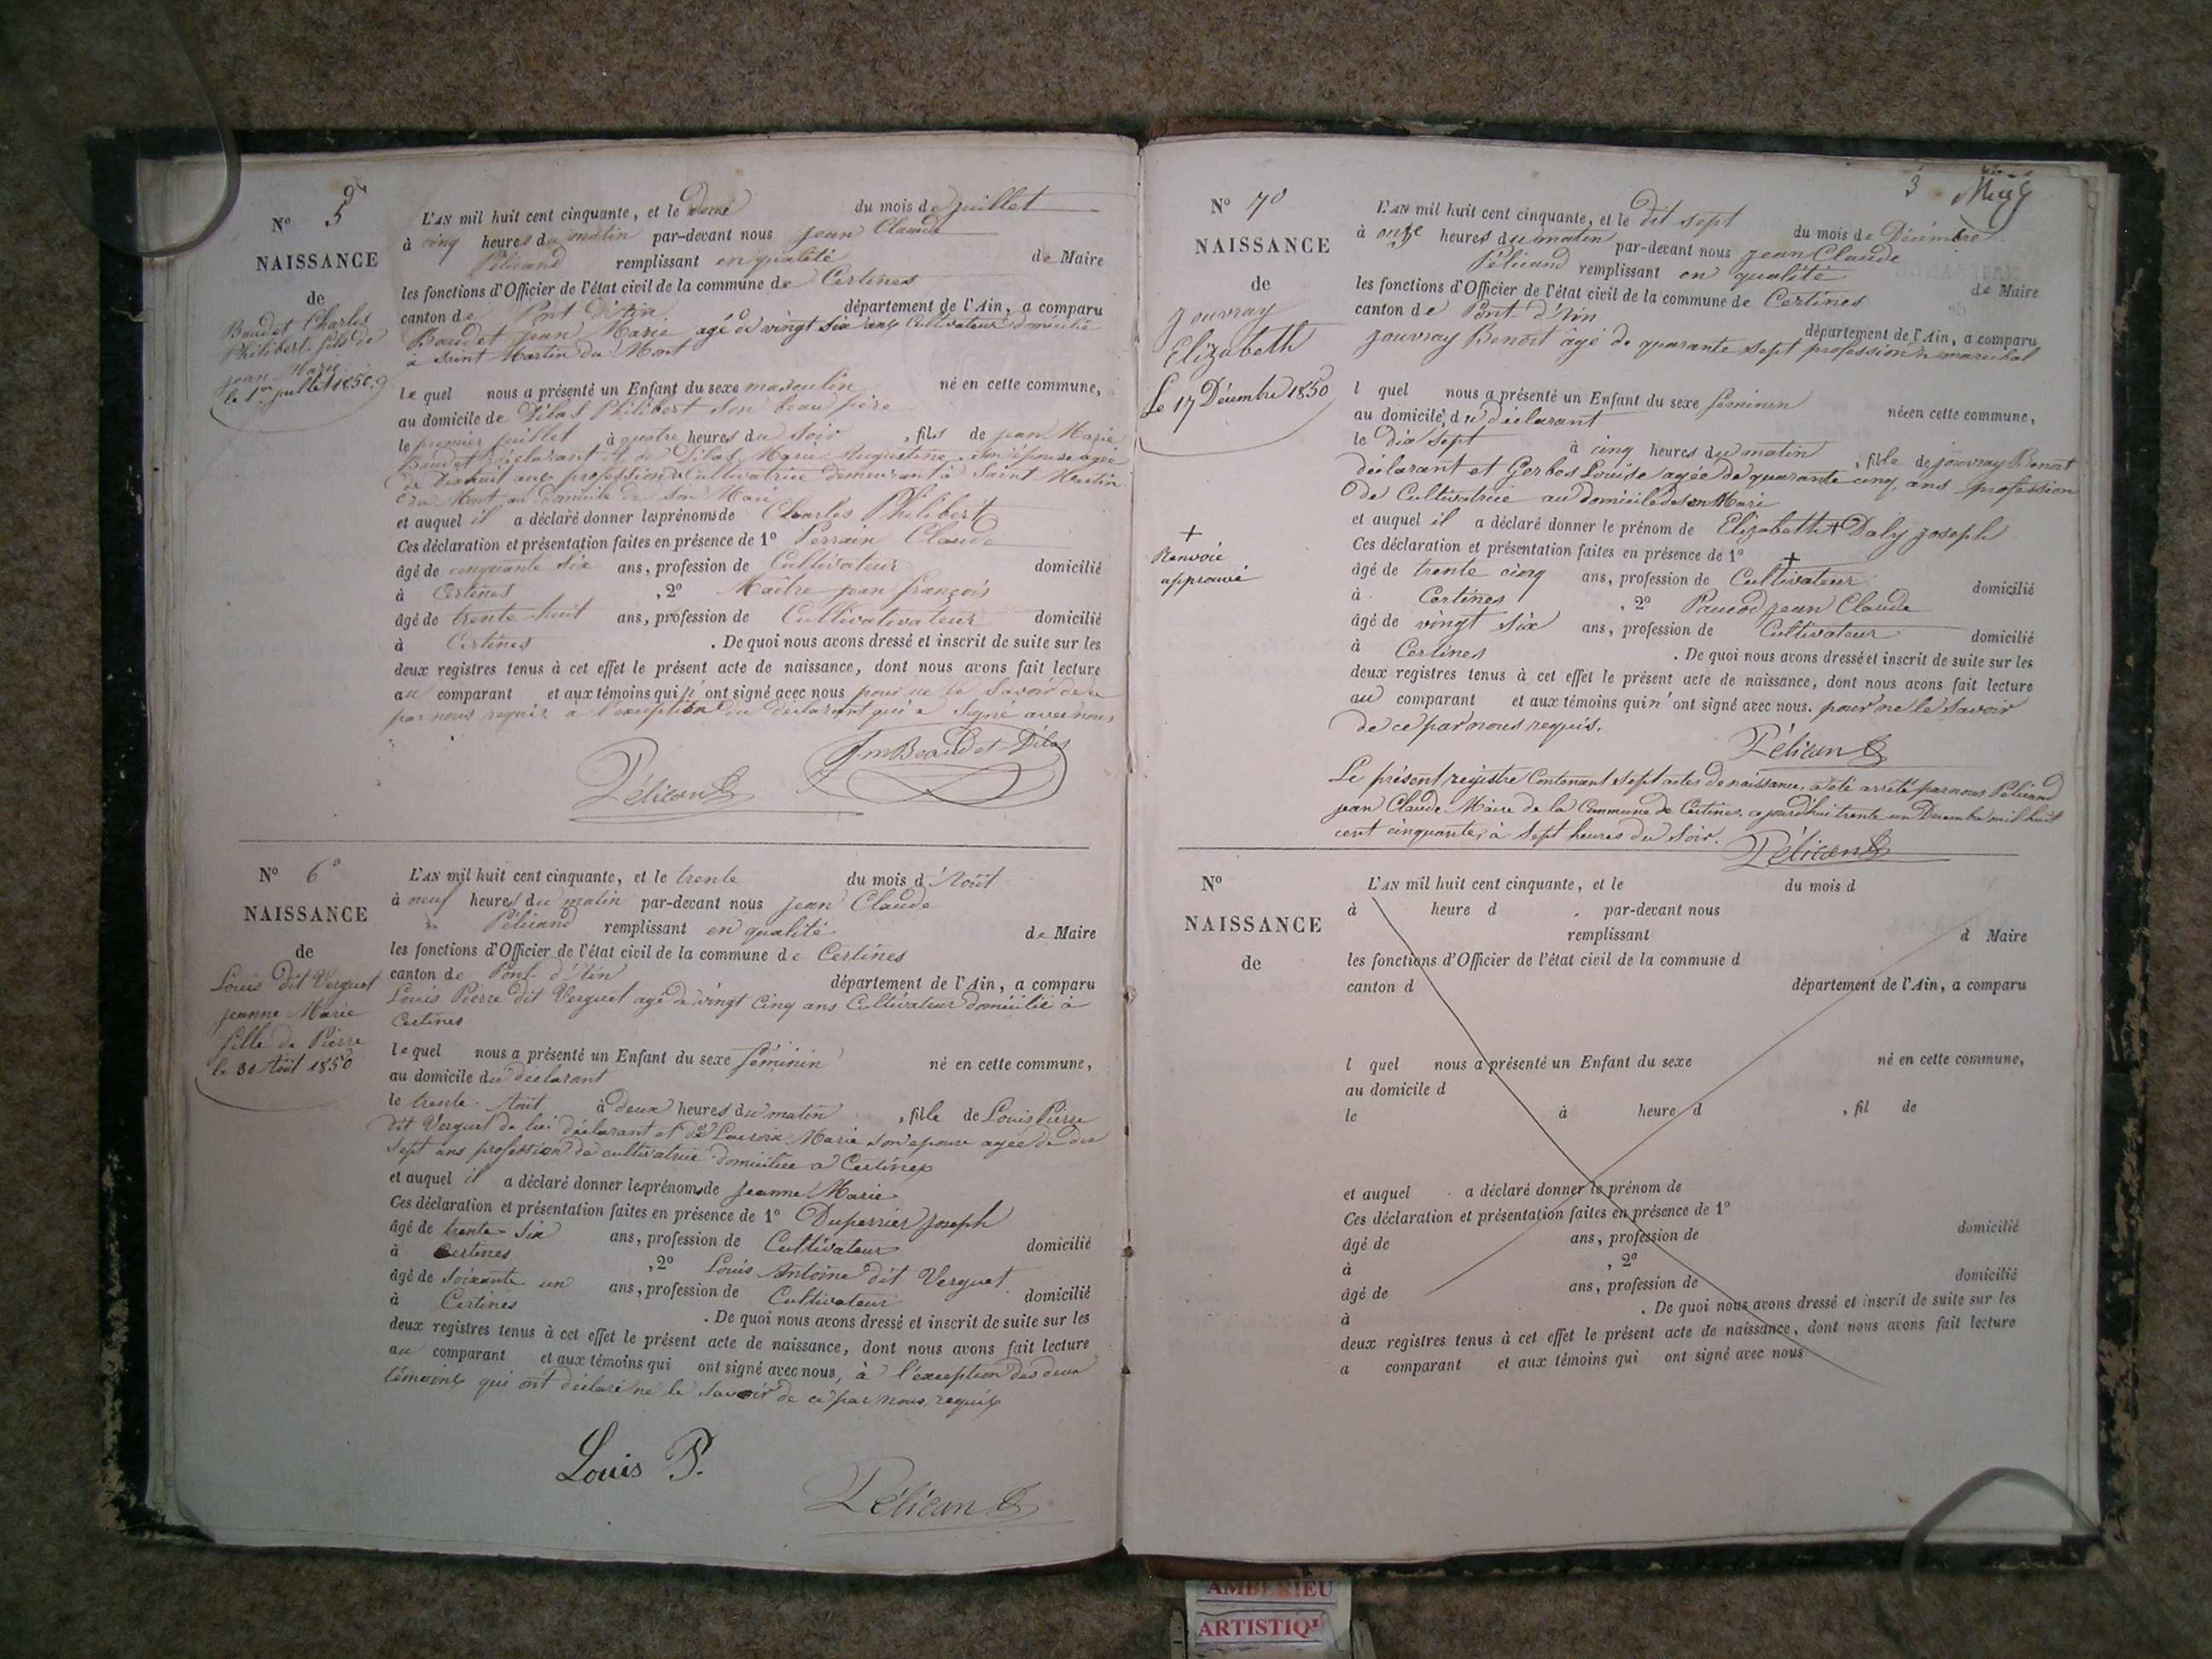 N° 5°
NAISSANCE
de
Baudet Charles
Philibert fils de
jean Marie
le 1er juillet 1850
L'AN mil huit cent cinquante, et le deux du mois de juillet
à cinq heures du matin par-devant nous jean Claude
Pélicand remplissant en qualité de Maire
les fonctions d'Officier de l'état civil de la commune de Certines
canton de Pont d'Ain département de l'Ain, a comparu
Baudet jean Marie agé de vingt six ans Cultivateur domicilié
à Saint Martin du Mont
lequel nous a présenté un Enfant du sexe masculin né en cette commune,
au domicile de Dilas Philibert son beau père
le premier juillet à quatre heures du soir, fils de jean Marie
Baudet déclarant et de Dilas Marie Augustine son épouse agée
de dixhuit ans profession de Cultivatrice demeurant à Saint Martin
du Mont au domicile de son Mari
et auquel il a déclaré donner les prénoms de Charles Philibert
Ces déclaration et présentation faites en présence de 1° Perrain Claude
âgé de cinquante six ans, profession de Cultivateur domicilié
à Certines, 2° Maître jean françois
âgé de trente-huit ans, profession de Cultivativateur domicilié
à Certines. De quoi nous avons dressé et inscrit de suite sur les
deux registres tenus à cet effet le présent acte de naissance, dont nous avons fait lecture
au comparant et aux témoins qui n'ont signé avec nous pour ne le Savoir de ce
par nous requis à l'exception du déclarant qui a Signé avec nous
Pélicand JmBeaudet-Dilas
N° 6°
NAISSANCE
de
Louis dit Verguet
jeanne Marie
fille de Pierre
le 30 Août 1850
L'AN mil huit cent cinquante, et le trente du mois d'Août
à neuf heures du matin par-devant nous jean Claude
Pélicand remplissant en qualité de Maire
les fonctions d'Officier de l'état civil de la commune de Certines
canton de Pont-d'Ain département de l'Ain, a comparu
Louis Pierre dit Verguet agé de vingt Cinq ans Cultivateur domicilié à
Certines
lequel nous a présenté un Enfant du sexe féminin né en cette commune,
au domicile du déclarant
le trente Août à deux heures du matin, fille de Louis Pierre
dit Verguet de lui déclarant et de Lacroix Marie son épouse agée de dix
Sept ans profession de cultivatrice domiciliée à Certines
et auquel il a déclaré donner les prénoms de jeanne Marie
Ces déclaration et présentation faites en présence de 1° Duperrier joseph
âgé de trente-Six ans, profession de Cultivateur domicilié
à Certines, 2° Louis Antoine dit Verguet
âgé de Soixante un ans, profession de Cultivateur domicilié
à Certines. De quoi nous avons dressé et inscrit de suite sur les
deux registres tenus à cet effet le présent acte de naissance, dont nous avons fait lecture
au comparant et aux témoins qui ont signé avec nous, à l'exception des deux
témoins qui ont déclaré ne le Savoir de ce par nous requis
Louis P.
Pélicand
3
N° 7°
NAISSANCE
de
jouvray
Elizabeth
Le 17 Décembre 1850
+
Renvoie
approuvé
L'AN mil huit cent cinquante, et le dit sept du mois de Décembre
à onze heures du matin par-devant nous jean Claude
Pélicand remplissant en qualité de Maire
les fonctions d'Officier de l'état civil de la commune de Certines
canton de Pont d'Ain département de l'Ain, a comparu
jouvray Benoit âgé de quarante sept profession de maréchal
l quel nous a présenté un Enfant du sexe féminin née en cette commune,
au domicile du déclarant
le dix sept à cinq heures du matin, fille de jouvray Benoit
déclarant et Gerbes Louise agée de quarante cinq ans profession
de Cultivatrice au domicile de son Mari
et auquel il a déclaré donner le prénom de Elizabeth + Daly joseph
Ces déclaration et présentation faites en présence de 1° +
âgé de trente cinq ans, profession de Cultivateur domicilié
à Certines, 2° Paucod jean Claude
âgé de vingt six ans, profession de Cultivateur domicilié
à Certines. De quoi nous avons dressé et inscrit de suite sur les
deux registres tenus à cet effet le présent acte de naissance, dont nous avons fait lecture
au comparant et aux témoins qui n'ont signé avec nous. pour ne le Savoir
de ce par nous requis.
Pélicand
Le présent registre Contenant Sept actes de naissance, a été arrêté par nous Pélicand
jean Claude Maire de la Commune de Certines, ce jourd'hui trente un Décembre mil huit
cent cinquante, à Sept heures du Soir. Pélicand
N°
NAISSANCE
de
L'AN mil huit cent cinquante, et le du mois d
à heure d par-devant nous
remplissant d Maire
les fonctions d'Officier de l'état civil de la commune d
canton d département de l'Ain, a comparu
l quel nous a présenté un Enfant du sexe né en cette commune,
au domicile d
le à heure d, fil de
et auquel a déclaré donner le prénom de
Ces déclaration et présentation faites en présence de 1°
âgé de ans, profession de domicilié
à, 2°
âgé de ans, profession de domicilié
à. De quoi nous avons dressé et inscrit de suite sur les
deux registres tenus à cet effet le présent acte de naissance, dont nous avons fait lecture
a comparant et aux témoins qui ont signé avec nous
AMBERIEU
ARTISTIQ